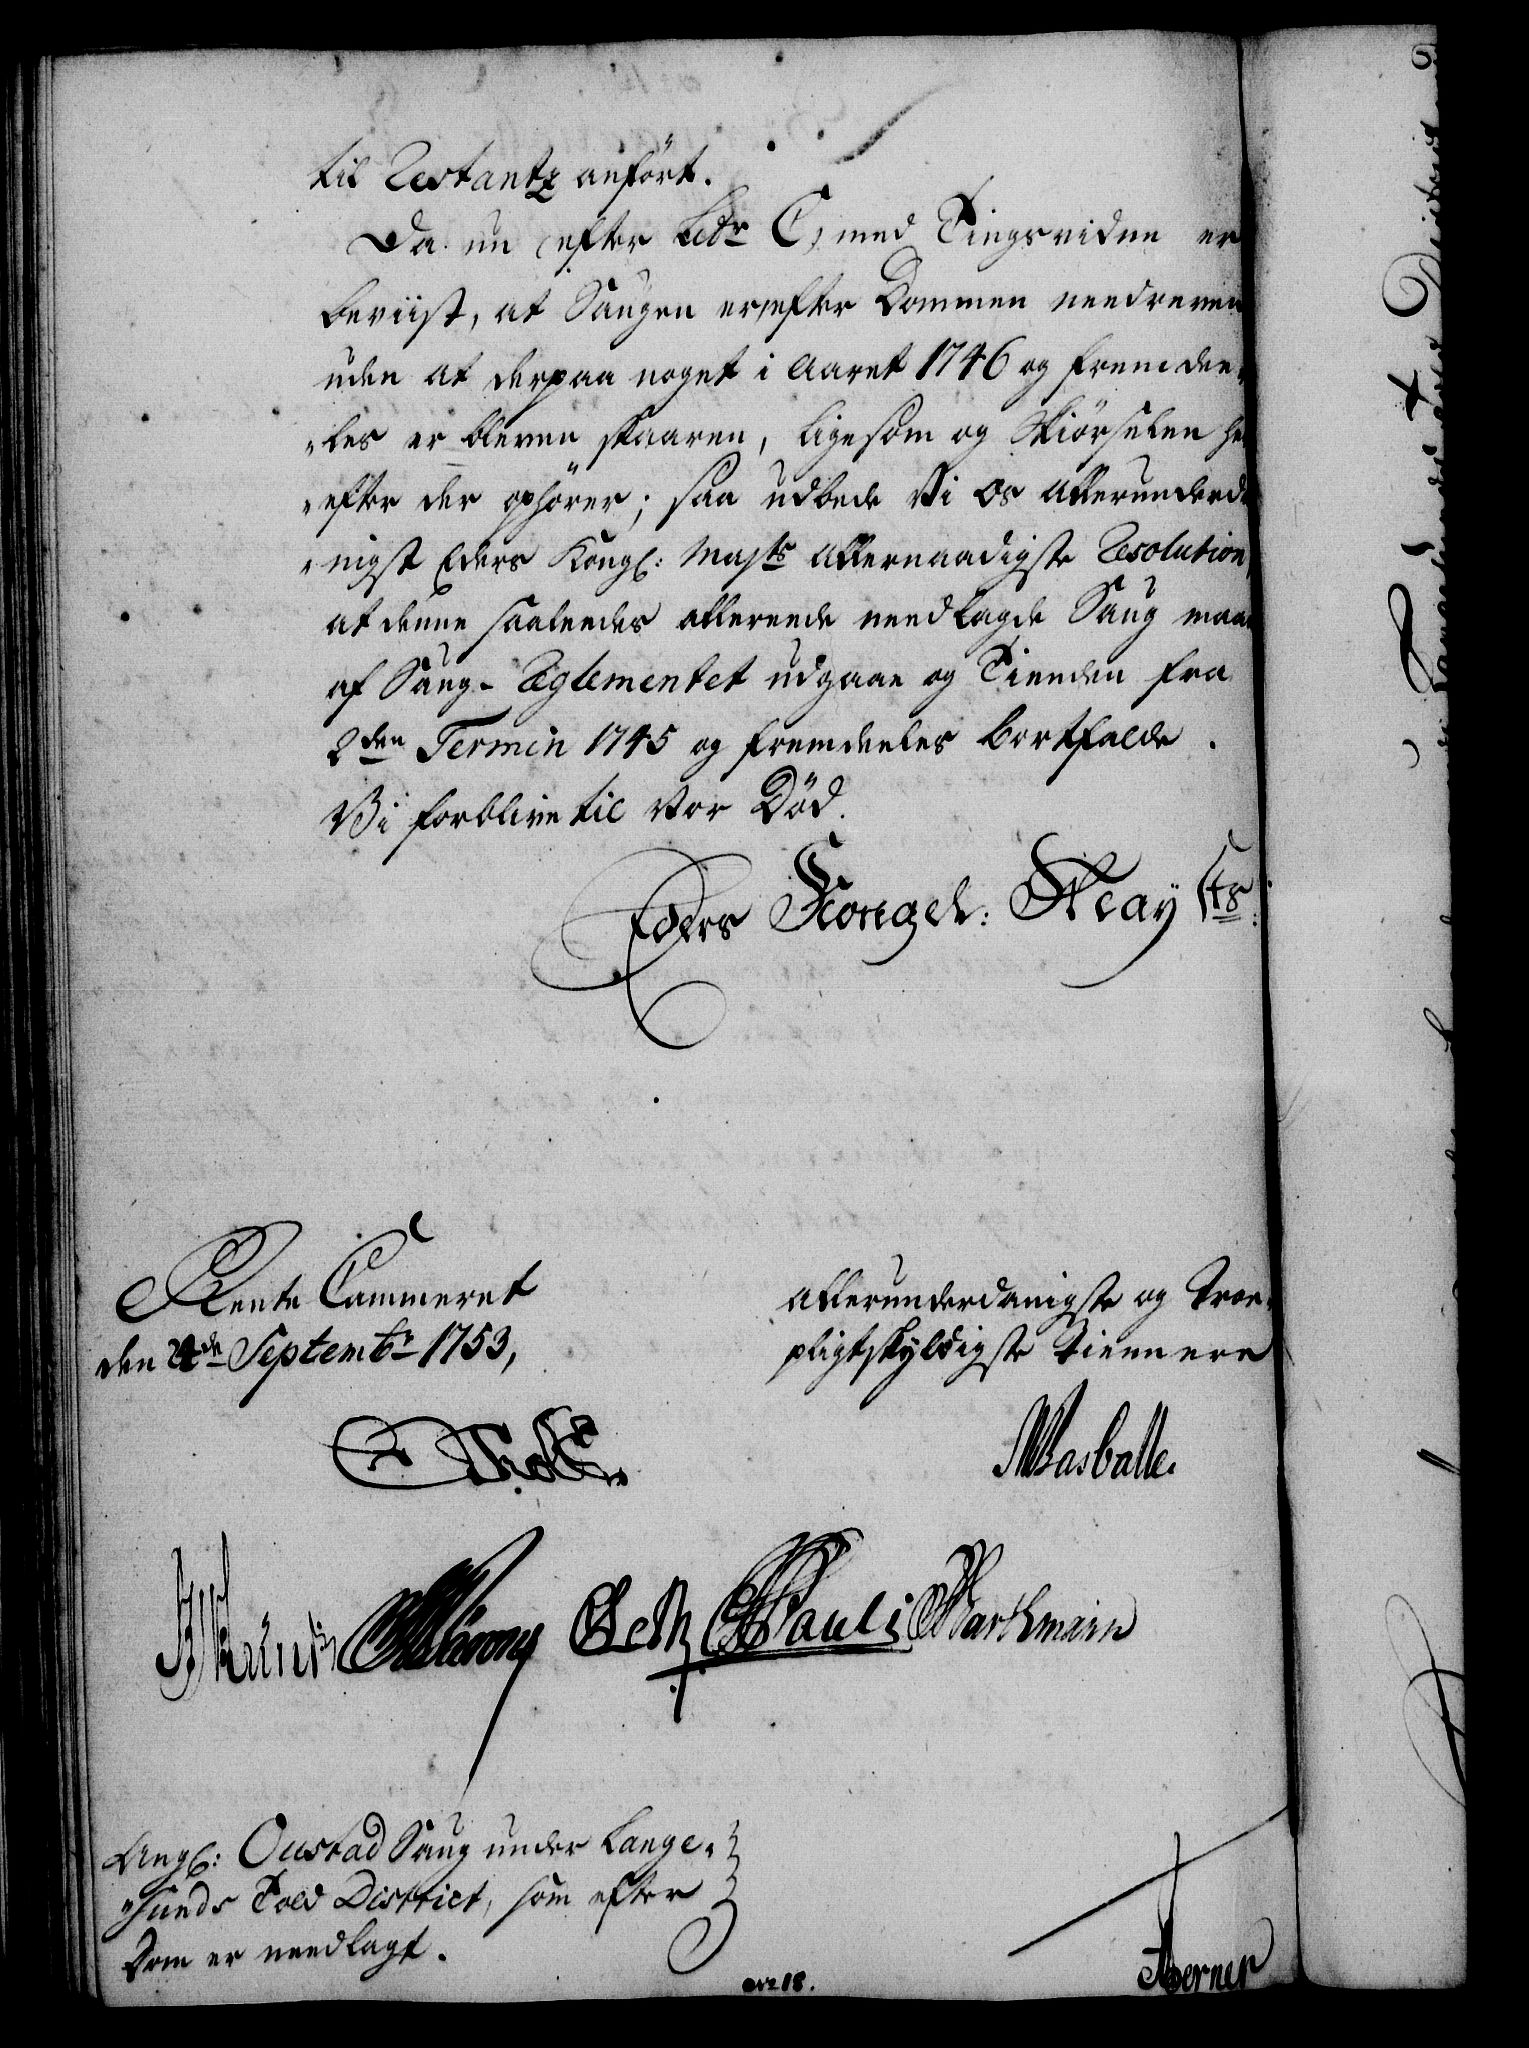 til Restantz anført.
Da nu (efter Lidr C,) med Tingsvidne er
beviist, at Saugen er, efter Dommen needreven
uden at derpaa noget i Aaret 1746 og fremdee-
les er bleven skaaren, ligesom og Kiørselen her
efter der ophører; saa udbede Vi Os allerunderda
nigst Eders Kongl: Mayts allernaadigste Resolution,
at denne saaleedes allereede needlagde Saug maae
af Saug-Reglementet udgaae og Tienden fra
2den Termin 1745 og fremdeeles bortfalde.
Vi forblive til Vor Død.
Eders Kongel: Mayts:
Rente Cammeret
den 4de Septembr 1753,
allerunderdanigste og Troe-
pligtskyldigste Tiennere
Wasballe.
Pauli Barthmain
Angl: Oustad Saug under Lange-
sunds Told District, som efter
Dom er needlagt.
Berner
No 18.